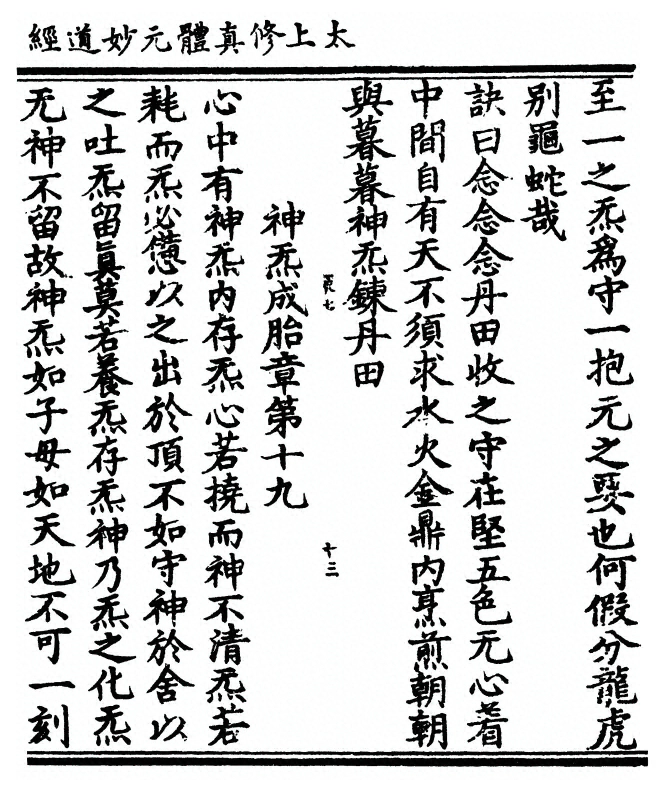 太上修真體元妙道經
至一之炁爲守一抱元之也何假分龍虎
别龜蛇哉
訣曰念念念丹田收之守在堅五色无心着
中間自有天不須求水火金鼎内烹煎朝朝
與暮暮神炁鍊丹田
十三
神炁成胎章第十九
心中有神炁内存炁心若撓而神不清炁若
耗而炁必憊以之出於頂不如守神於舍以
之吐炁留眞莫若養炁存炁神乃炁之化炁
无神不留故神炁如子母如天地不可一刻